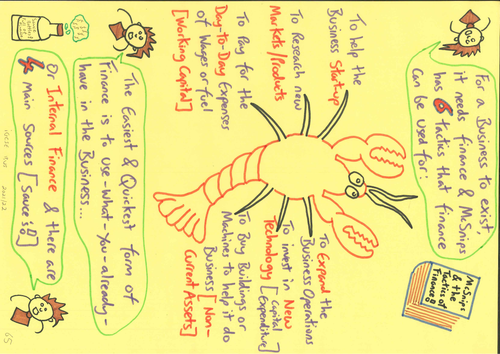 For a Business to exist
it needs finance & McSnips
has 6 tactics that finance
can be used for:
McSnips
& the
Tactics of
Finance
To help the
Business Startup
To Research new
Markets/Products
To Pay for the
Day-to-Day Expenses
of Wages or fuel
[Working Capital]
To Expand the
Business Operations
To invest in New
Technology [Capital
Expenditure]
To Buy Buildings or
Machines to help it do
Business [Non-
Current Assets]
The Easiest & Quickest form of
Finance is to use-what-you-already-
have in the Business...
Or Internal Finance & there are
4 main Sources [Sauce's!]
65